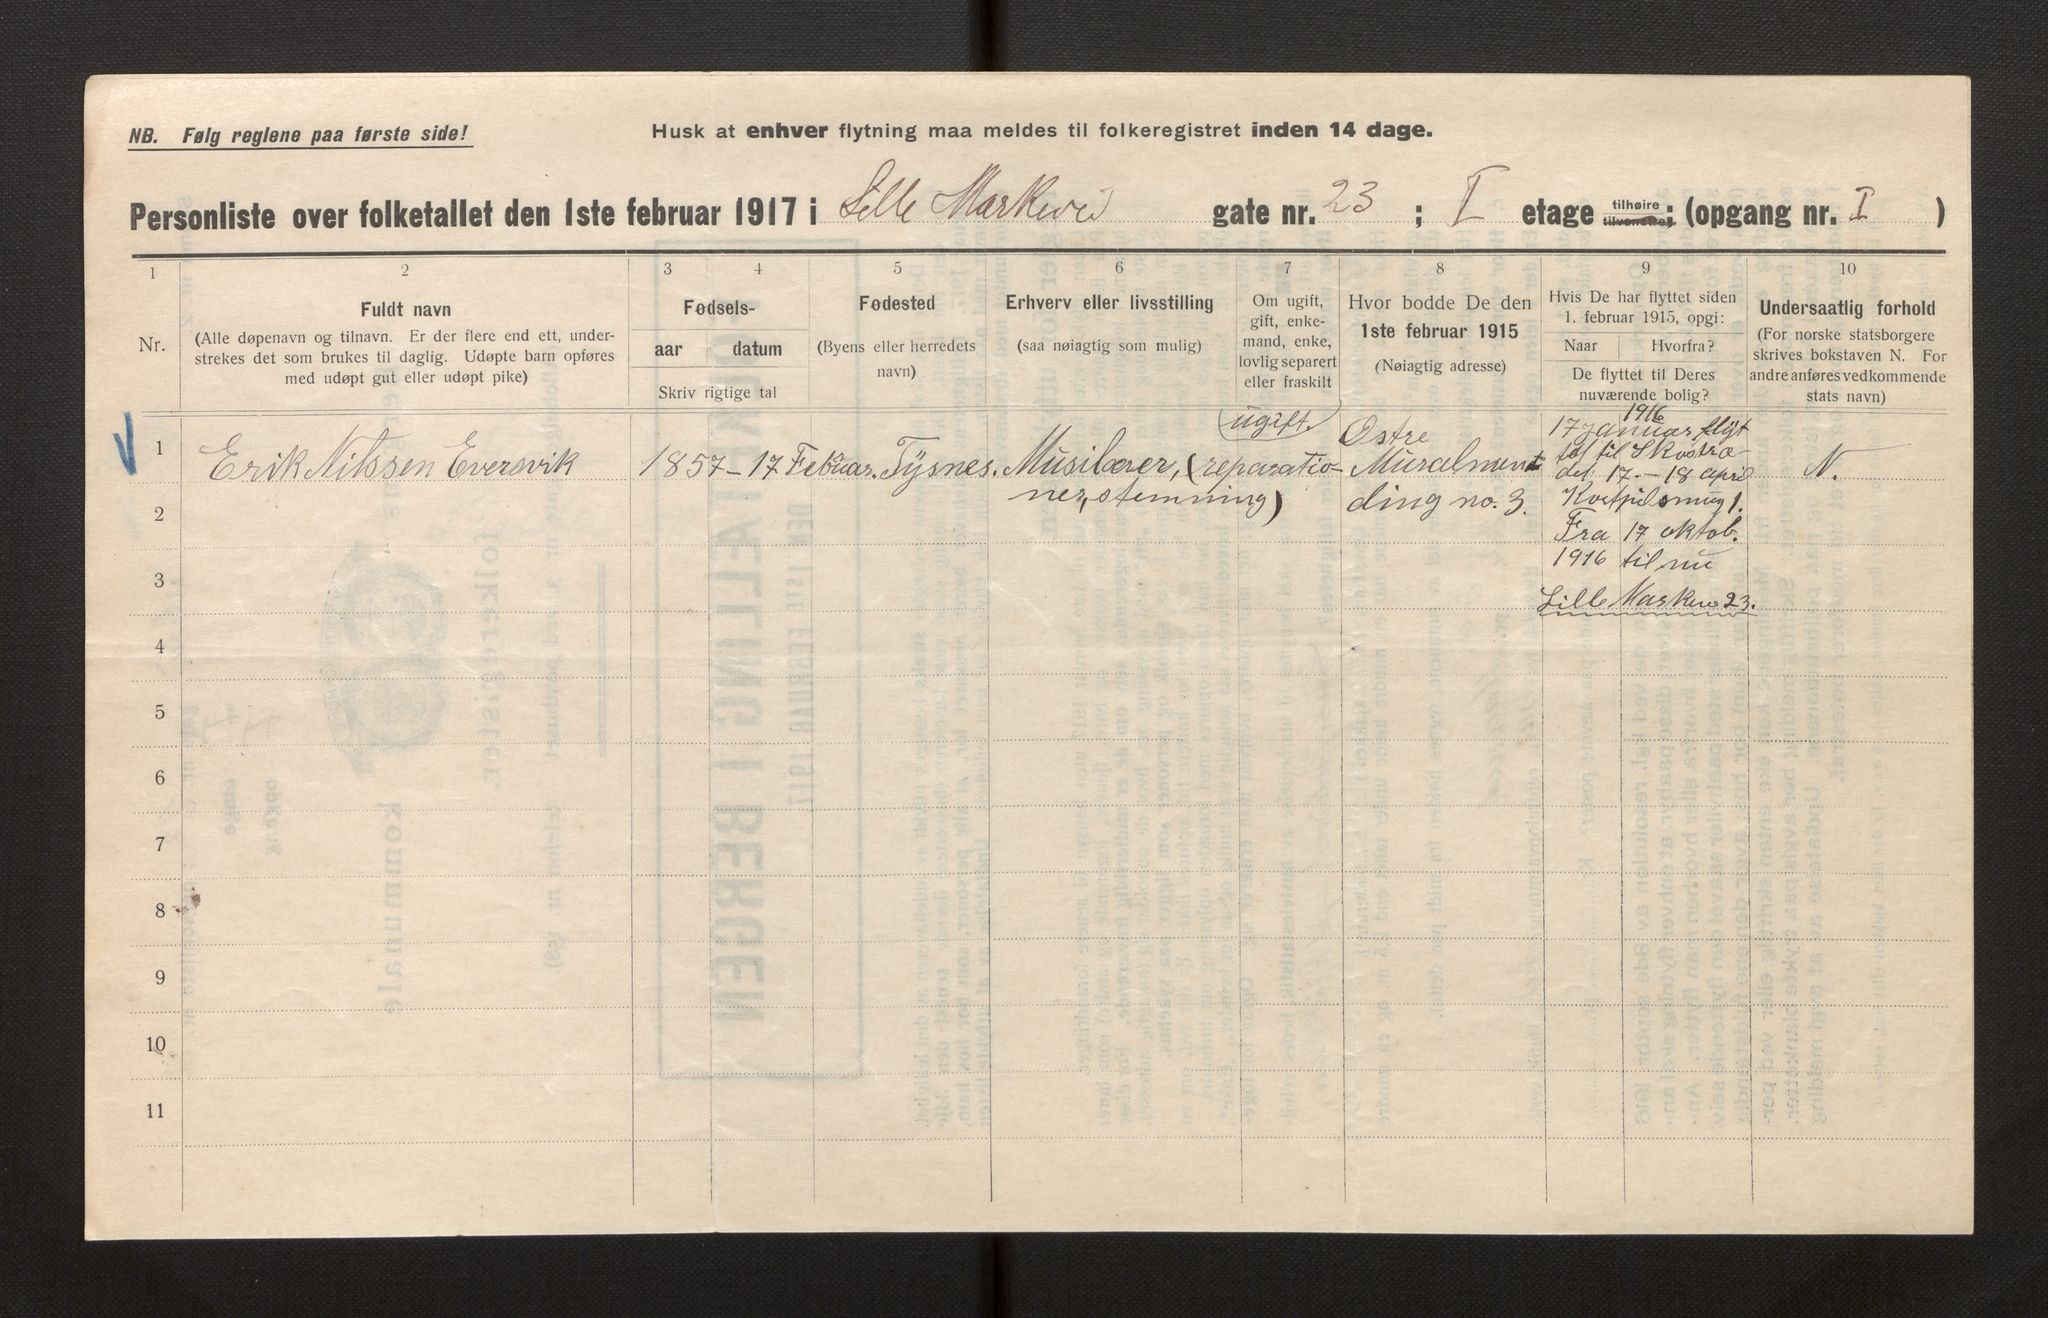 NB. Følg reglene paa første side!
Husk at enhver flytning maa meldes til folkeregistret inden 14 dage.
Personliste over folketallet den 1ste februar 1917 i Lille Markevei gate nr. 23 ; I etage tilhøire tilvenstre; (opgang nr. I )
1 2 3 4 5 6 7 8 9 10
Nr.
Fuldt navn
(Alle døpenavn og tilnavn. Er der flere end ett, under-
strekes det som brukes til daglig. Udøpte barn opføres
med udøpt gut eller udøpt pike)
Fødsels-
aar datum
Skriv rigtige tal
Fødested
(Byens eller herredets
navn)
Erhverv eller livsstilling
(saa nøiagtig som mulig)
Om ugift,
gift, enke-
mand, enke,
lovlig separert
eller fraskilt
Hvor bodde De den
1ste februar 1915
(Nøiagtig adresse)
Hvis De har flyttet siden
1. februar 1915, opgi:
Naar Hvorfra?
De flyttet til Deres
nuværende bolig?
Undersaatlig forhold
(For norske statsborgere
skrives bokstaven N. For
andre anføres vedkommende
stats navn)
1
Erik Nilssen Eversvik
1857 – 17 Februar.
Tysnes.
Musilærer, (reparatio-
ner, stemning)
ugift.
Østre
Muralment
ding no. 3.
1916
17 januar flyt
til
17. – 18 april
1.
Fra 17 oktob.
1916 til nu
Lille Markeve 23.
N.
2
3
4
5
6
7
8
9
10
11